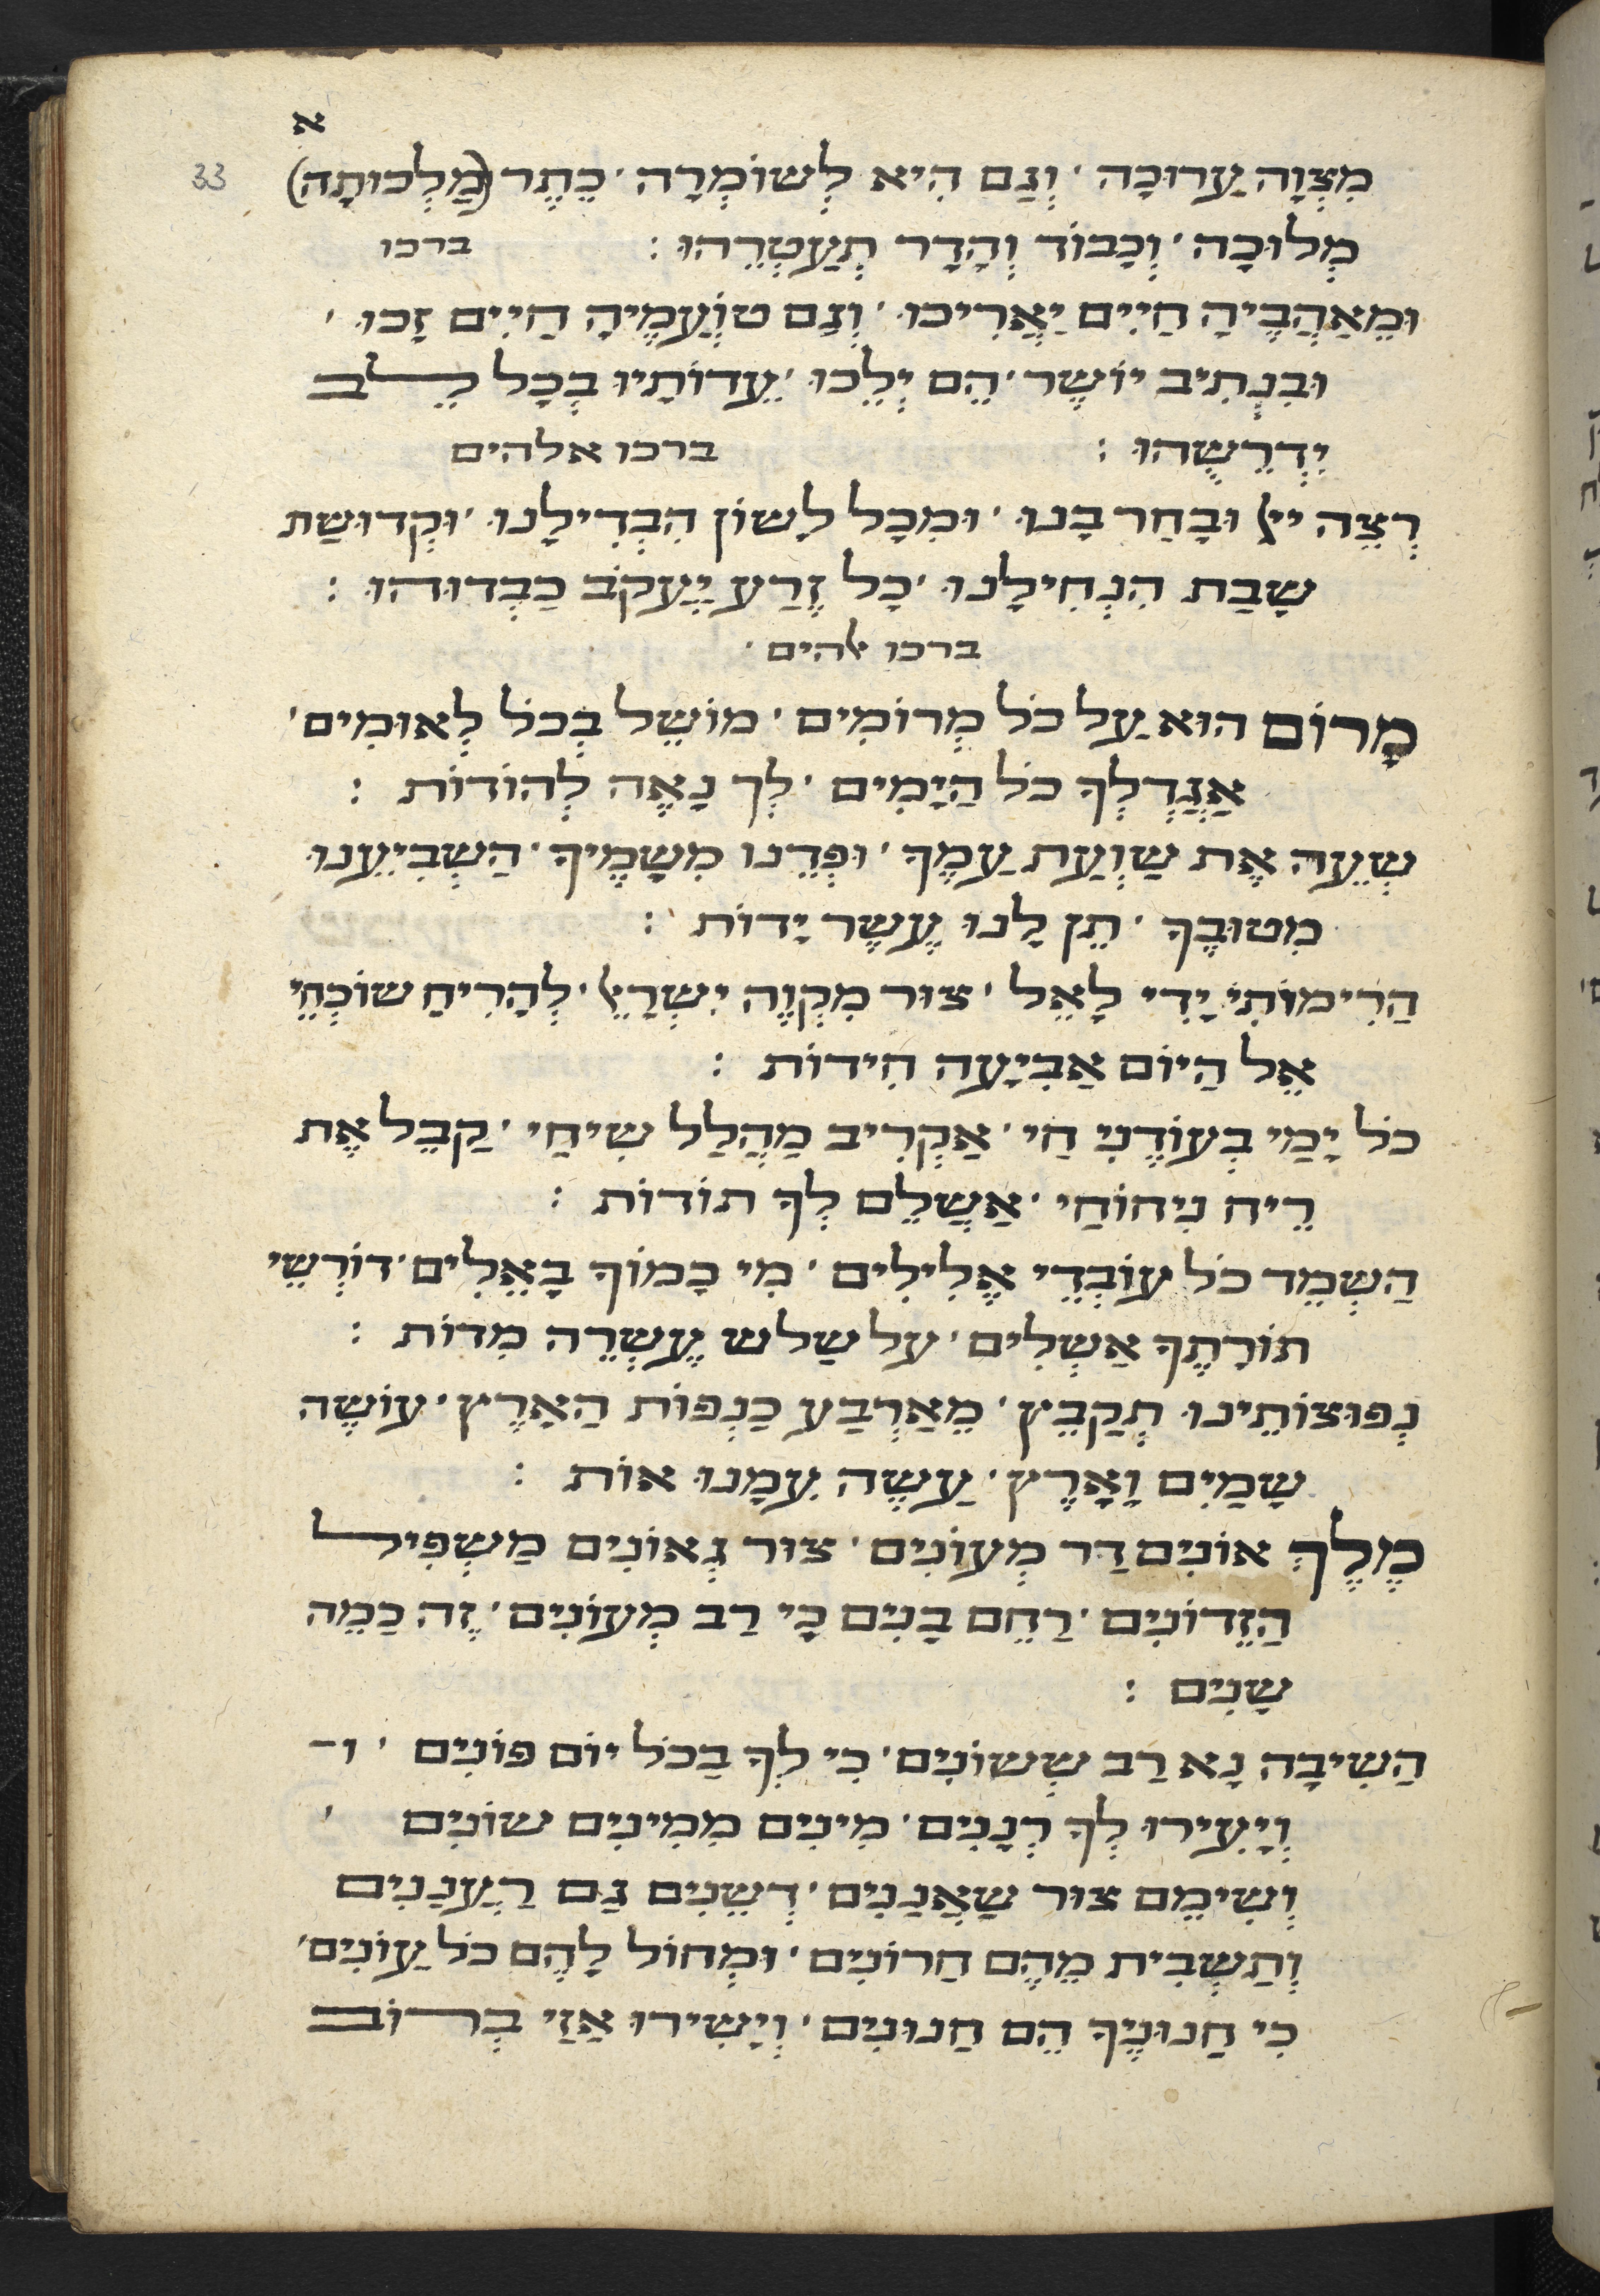 א
33
מִצְוָה עֲרוּכָה ׳ וְגַם הִיא לְשׁוֹמְרָהּ ׳ כֶתֶר (מַלְכוּתָהּ)
מְלוּכָה ׳ וְכָבוֹד וְהָדָר תְעַטְרֵהוּ : ברכו
וּמֵאַהֲבֶיהָ חַיִים יַאֲרִיכוּ ׳ וְגַם טוֹעֲמֶיהָ חַיִים זָכוּ ׳
וּבִנְתִיב יוֹשֶׁר ׳ הֵם יְלֵכוּ ׳ עֵדוֹתָיו בְכָל לֵב
יִדְרְשֻׁהוּ : ברכו אלהים
רְצֵה יי׳ וּבָחַר בָנוּ ׳ וּמִכָל לָשׁוֹן הִבְדִילָנוּ ׳ וּקְדוּשַׁת
שַׁבַת הִנְחִילָנוּ ׳ כָל זֶרַע יַעֲקֹב כַבְדוּהוּ :
ברכו אלהים ׳
מָרוֹם הוּא עַל כֹל מְרוֹמִים ׳ מוֹשֵׁל בְכֹל לְאוּמִים ׳
אֲגַדְלְךָ כֹל הַיָמִים ׳ לְךָ נָאֶה לְהוֹדוֹת :
שְׁעֵה אֶת שַׁוְעַת עַמֶךָ ׳ וּפְדֵנוּ מִשָׁמֶיךָ ׳ הַשְׂבִיעֵנוּ
מִטוּבֶךָ ׳ תֵן לָנוּ עֶשֶׂר יָדוֹת :
הֲרִימוֹתִי יָדִי לָאֵל ׳ צוּר מִקְוֵה יִשְׂרָאֵל ׳ לְהָרִיחַ שׁוֹכְחֵי
אֵל הַיוֹם אַבִיעָה חִידוֹת :
כֹל יָמַי בְעוֹדֶנִי חַי ׳ אַקְרִיב מַהֲלַל שִׂיחַי ׳ קַבֵל אֶת
רֵיחַ נִיחוֹחַי ׳ אֲשַׁלֵם לְךָ תוֹדוֹת :
הַשְׁמֵד כֹל עוֹבְדֵי אֱלִילִים ׳ מִי כָמוֹךָ בָאֵלִים ׳ דוֹרְשֵׁי
תוֹרָתֶךָ אַשְׁלִים ׳ על שְׁלֹש עֶשְׂרֵה מִדוֹת :
נְפוּצוֹתֵינוּ תְקַבֵץ ׳ מֵאַרְבַע כַנְפוֹת הָאָרֶץ ׳ עוֹשֶׂה
שָׁמַיִם וָאָרֶץ ׳ עֲשֵׂה עִמָנוּ אוֹת :
מֶלֶךְ אוֹנִים דַר מְעוֹנִים ׳ צוּר גְאוֹנִים מַשְׁפִיל
הַזֵדוֹנִים ׳ רַחֵם בָנִים כִי רַב מְעוֹנִים ׳ זֶה כַמֵה
שָׁנִים :
הַשִׁיבָה נָא רַב שְׂשׂוֹנִים ׳ כִי לְךָ בַכֹל יוֹם פוֹנִים ׳ ו־
וְיָעִירוּ לְךָ רְנָנִים ׳ מִינִים מִמִינִים שׁוֹנִים ׳
וְשִׂימֵם צוּר שַׁאֲנַנִים ׳ דְשֵׁנִים גַם רַעֲנַנִים
וְתַשְׁבִית מֵהֶם חֲרוֹנִים ׳ וּמְחוֹל לָהֶם כֹל עֲוֹנִים ׳
כִי חַנוּנֶיךָ הֵם חֲנוּנִים ׳ וְיָשִׁירוּ אֲזַי בְרוֹב